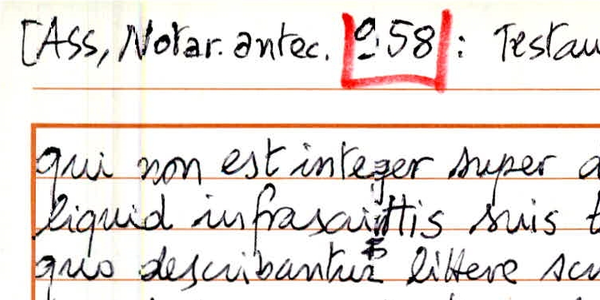 [Ass, Notar. antec. 958: Testau
qui non est integer super a
liquid infrascrittis suis t
quo describantur littere scr